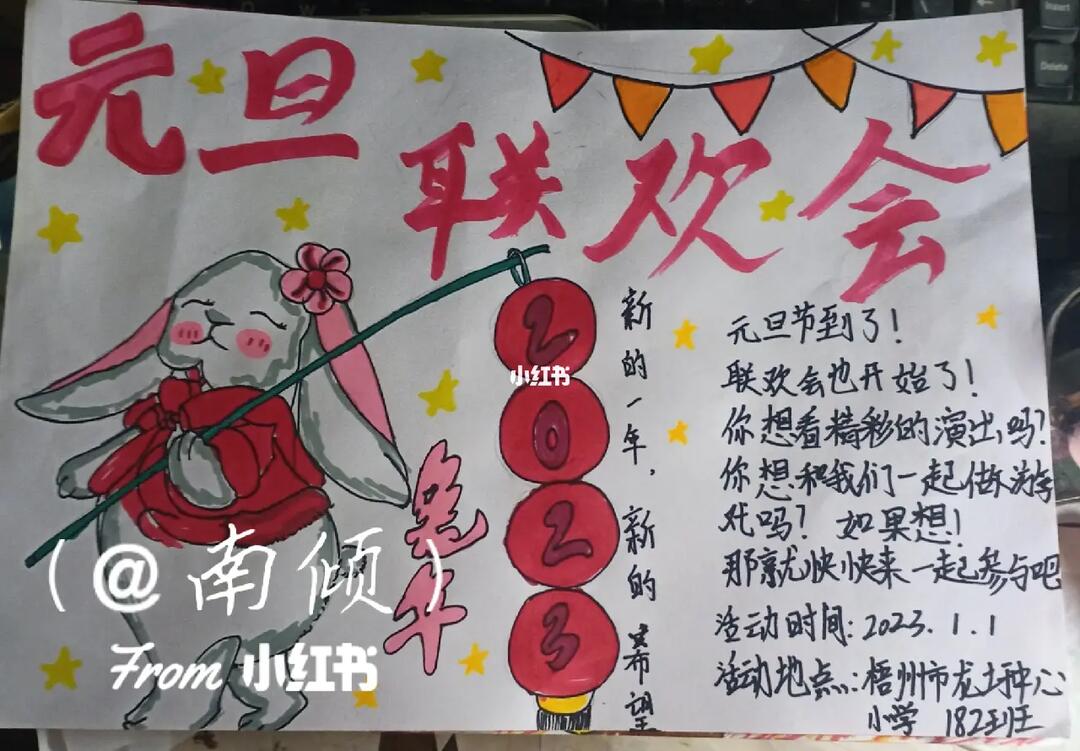 元旦
联欢会
2023
兔年
新的一年，新的希望
元旦节到了！
联欢会也开始了！
你想看精彩的演出吗？
你想和我们一起做游
戏吗？如果想！
那就快快来一起参与吧
活动时间：2023.1.1
活动地点：梧州市龙圩中心
小学 182班
小红书
（@南倾）
From 小红书
Insert
Delete